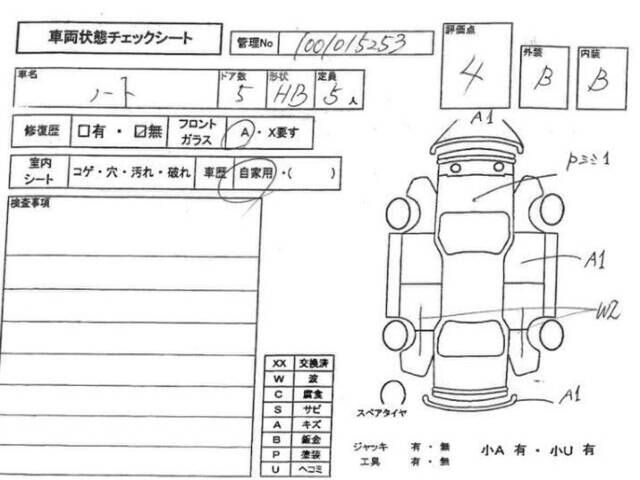 車両状態チェックシート
管理No 1001015253
評価点 4
外装 B
内装 B
車名 ノート
ドア数 5
形状 HB
定員 5人
修復歴 □有・☑無
フロントガラス A・X要す
室内シート コゲ・穴・汚れ・破れ
車歴 自家用・( )
検査事項
A1
Pミミ1
A1
W2
A1
XX 交換済
W 波
C 腐食
S サビ
A キズ
B 鈑金
P 塗装
U ヘコミ
スペアタイヤ
ジャッキ 有・無
工具 有・無
小A 有・小U 有